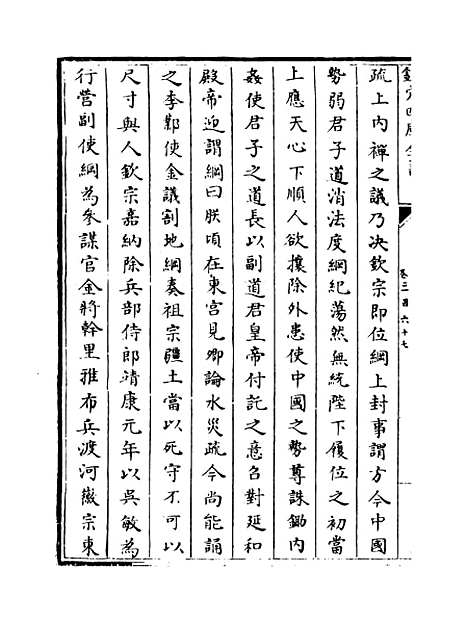 疏上内禪之議乃决欽宗即位綱上封事謂方今中國
勢弱君子道消法度綱紀蕩然無統陛下履位之初當
上應天心下順人欲攘除外患使中國之勢尊誅鋤内
姦使君子之道長以副道君皇帝付託之意召對延和
殿帝迎謂綱曰朕頃在東宫見卿論水災疏今尚能誦
之李鄴使金議割地綱奏祖宗疆土當以死守不可以
尺寸與人欽宗嘉納除兵部侍郎靖康元年以吳敏為
行營副使綱為參謀官金將斡里雅布兵渡河徽宗東
卷三百六十七